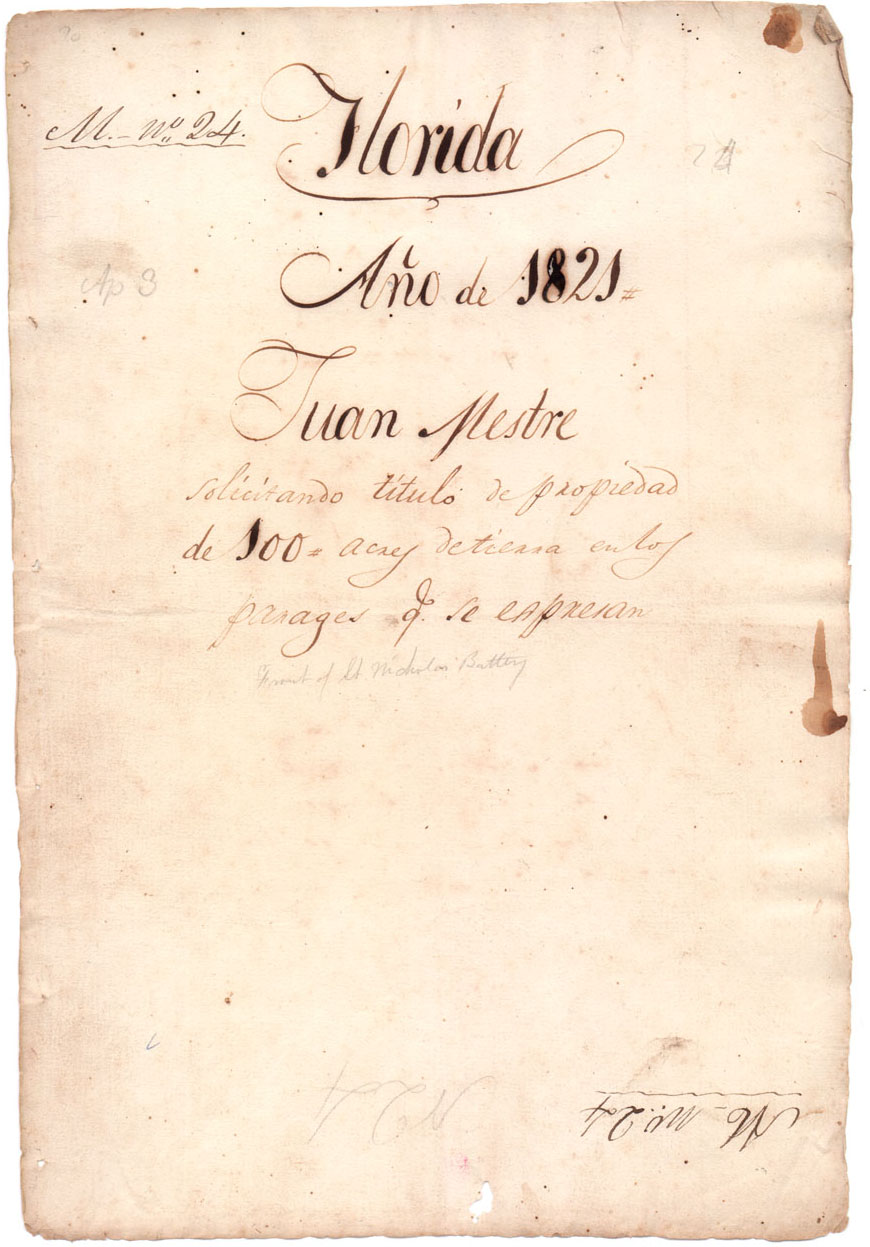 M. - nº 24.
Florida
24
Año de 1821=
Juan Mestre
solicitando titulo de propiedad
de 100= acres de tierra en los
parages q. se espresan
Front of St Nicholas Battery
Nº 24
M - Nº. 24